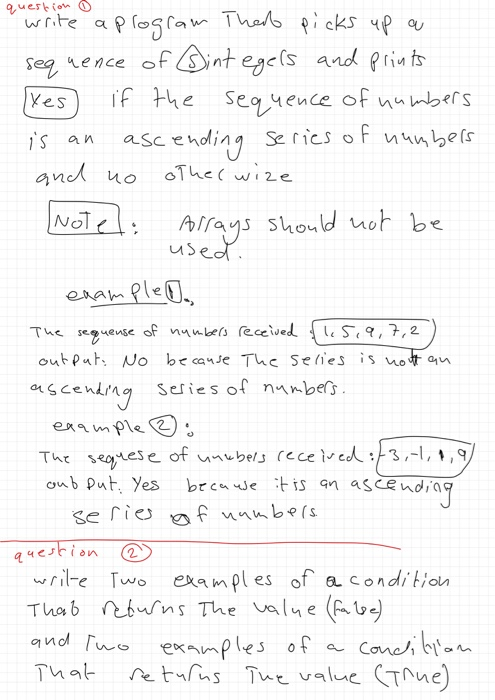 question ①
write a program That picks up a
sequence of 5 integers and prints
Yes if the sequence of numbers
is an ascending series of numbers
and no otherwize
Note: Arrays should not be
used.
example 1:
The sequense of numbers received: 1, 5, 9, 7, 2
output: No because The series is not an
ascending series of numbers.
example ②:
The sequese of numbers received: -3, -1, 1, 9
output: Yes because it is an ascending
series of numbers
question ②
write Two examples of a condition
That returns The value (false)
and Two examples of a condition
That returns The value (True)